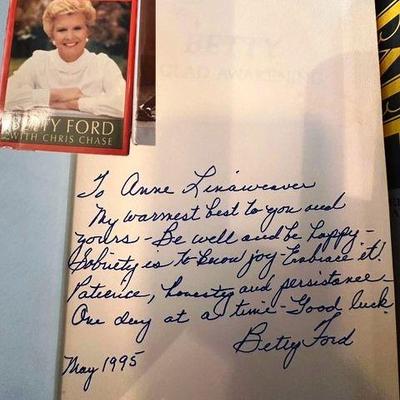 BETTY FORD
WITH CHRIS CHASE
BETTY
GLAD AWAKENING
To Anne Linaweaver
My warmest best to you and
yours - Be well and be happy -
Sobriety is to know joy - Embrace it!
Patience, honesty and persistance
One day at a time - Good luck
Betty Ford
May 1995